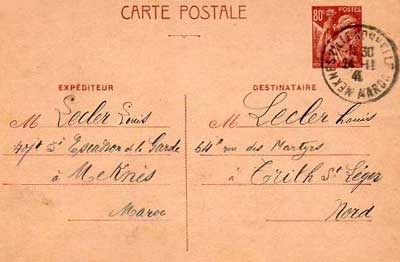 CARTE POSTALE
80c
POSTES
MEKNES-VILLE-NOUVELLE
30
24-11
41
MAROC
EXPÉDITEUR
M Lecler Louis
Escadron de la Garde
à Meknès
Maroc
DESTINATAIRE
M Lecler Louis
54e rue des Martyrs
à Trith St Léger
Nord